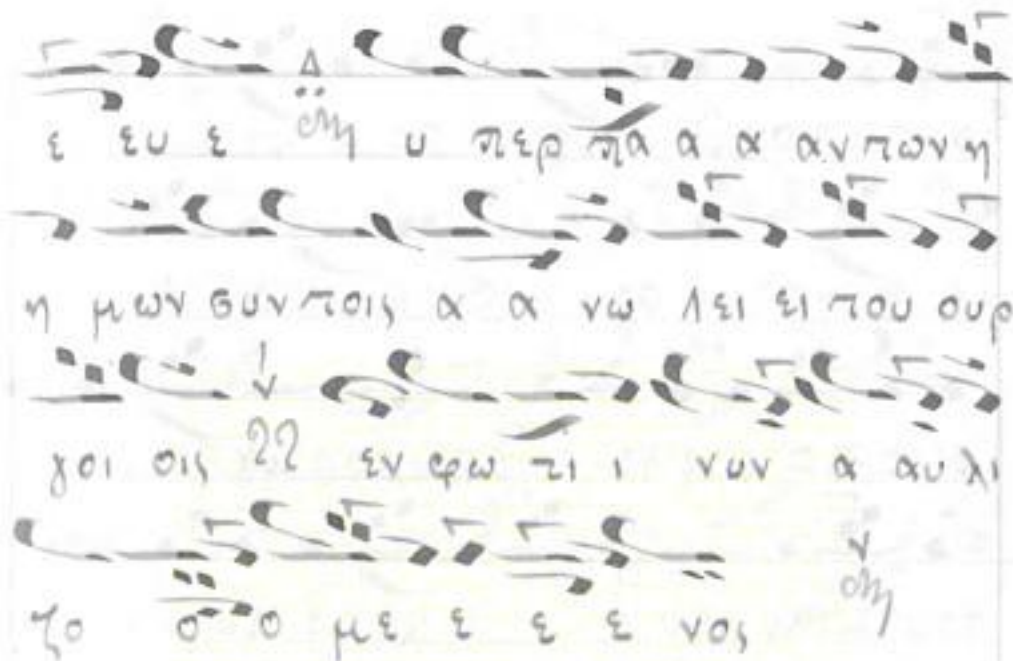 ε ευ ε υ περ πα α α αν των η
η μων συν τοις α α νω λει ει του ουρ
γοι οις εν φω τι ι νων α αυ λι
ζο ο ο με ε ε ε νος